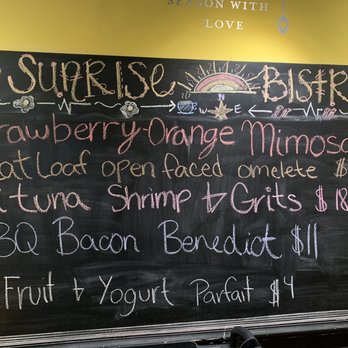 SEASON WITH
LOVE
SUNRISE BISTR
N
W E
rawberry-Orange Mimosa
eat Loaf open faced omelete $
i tuna Shrimp & Grits $18
BQ Bacon Benedict $11
Fruit & Yogurt Parfait $4